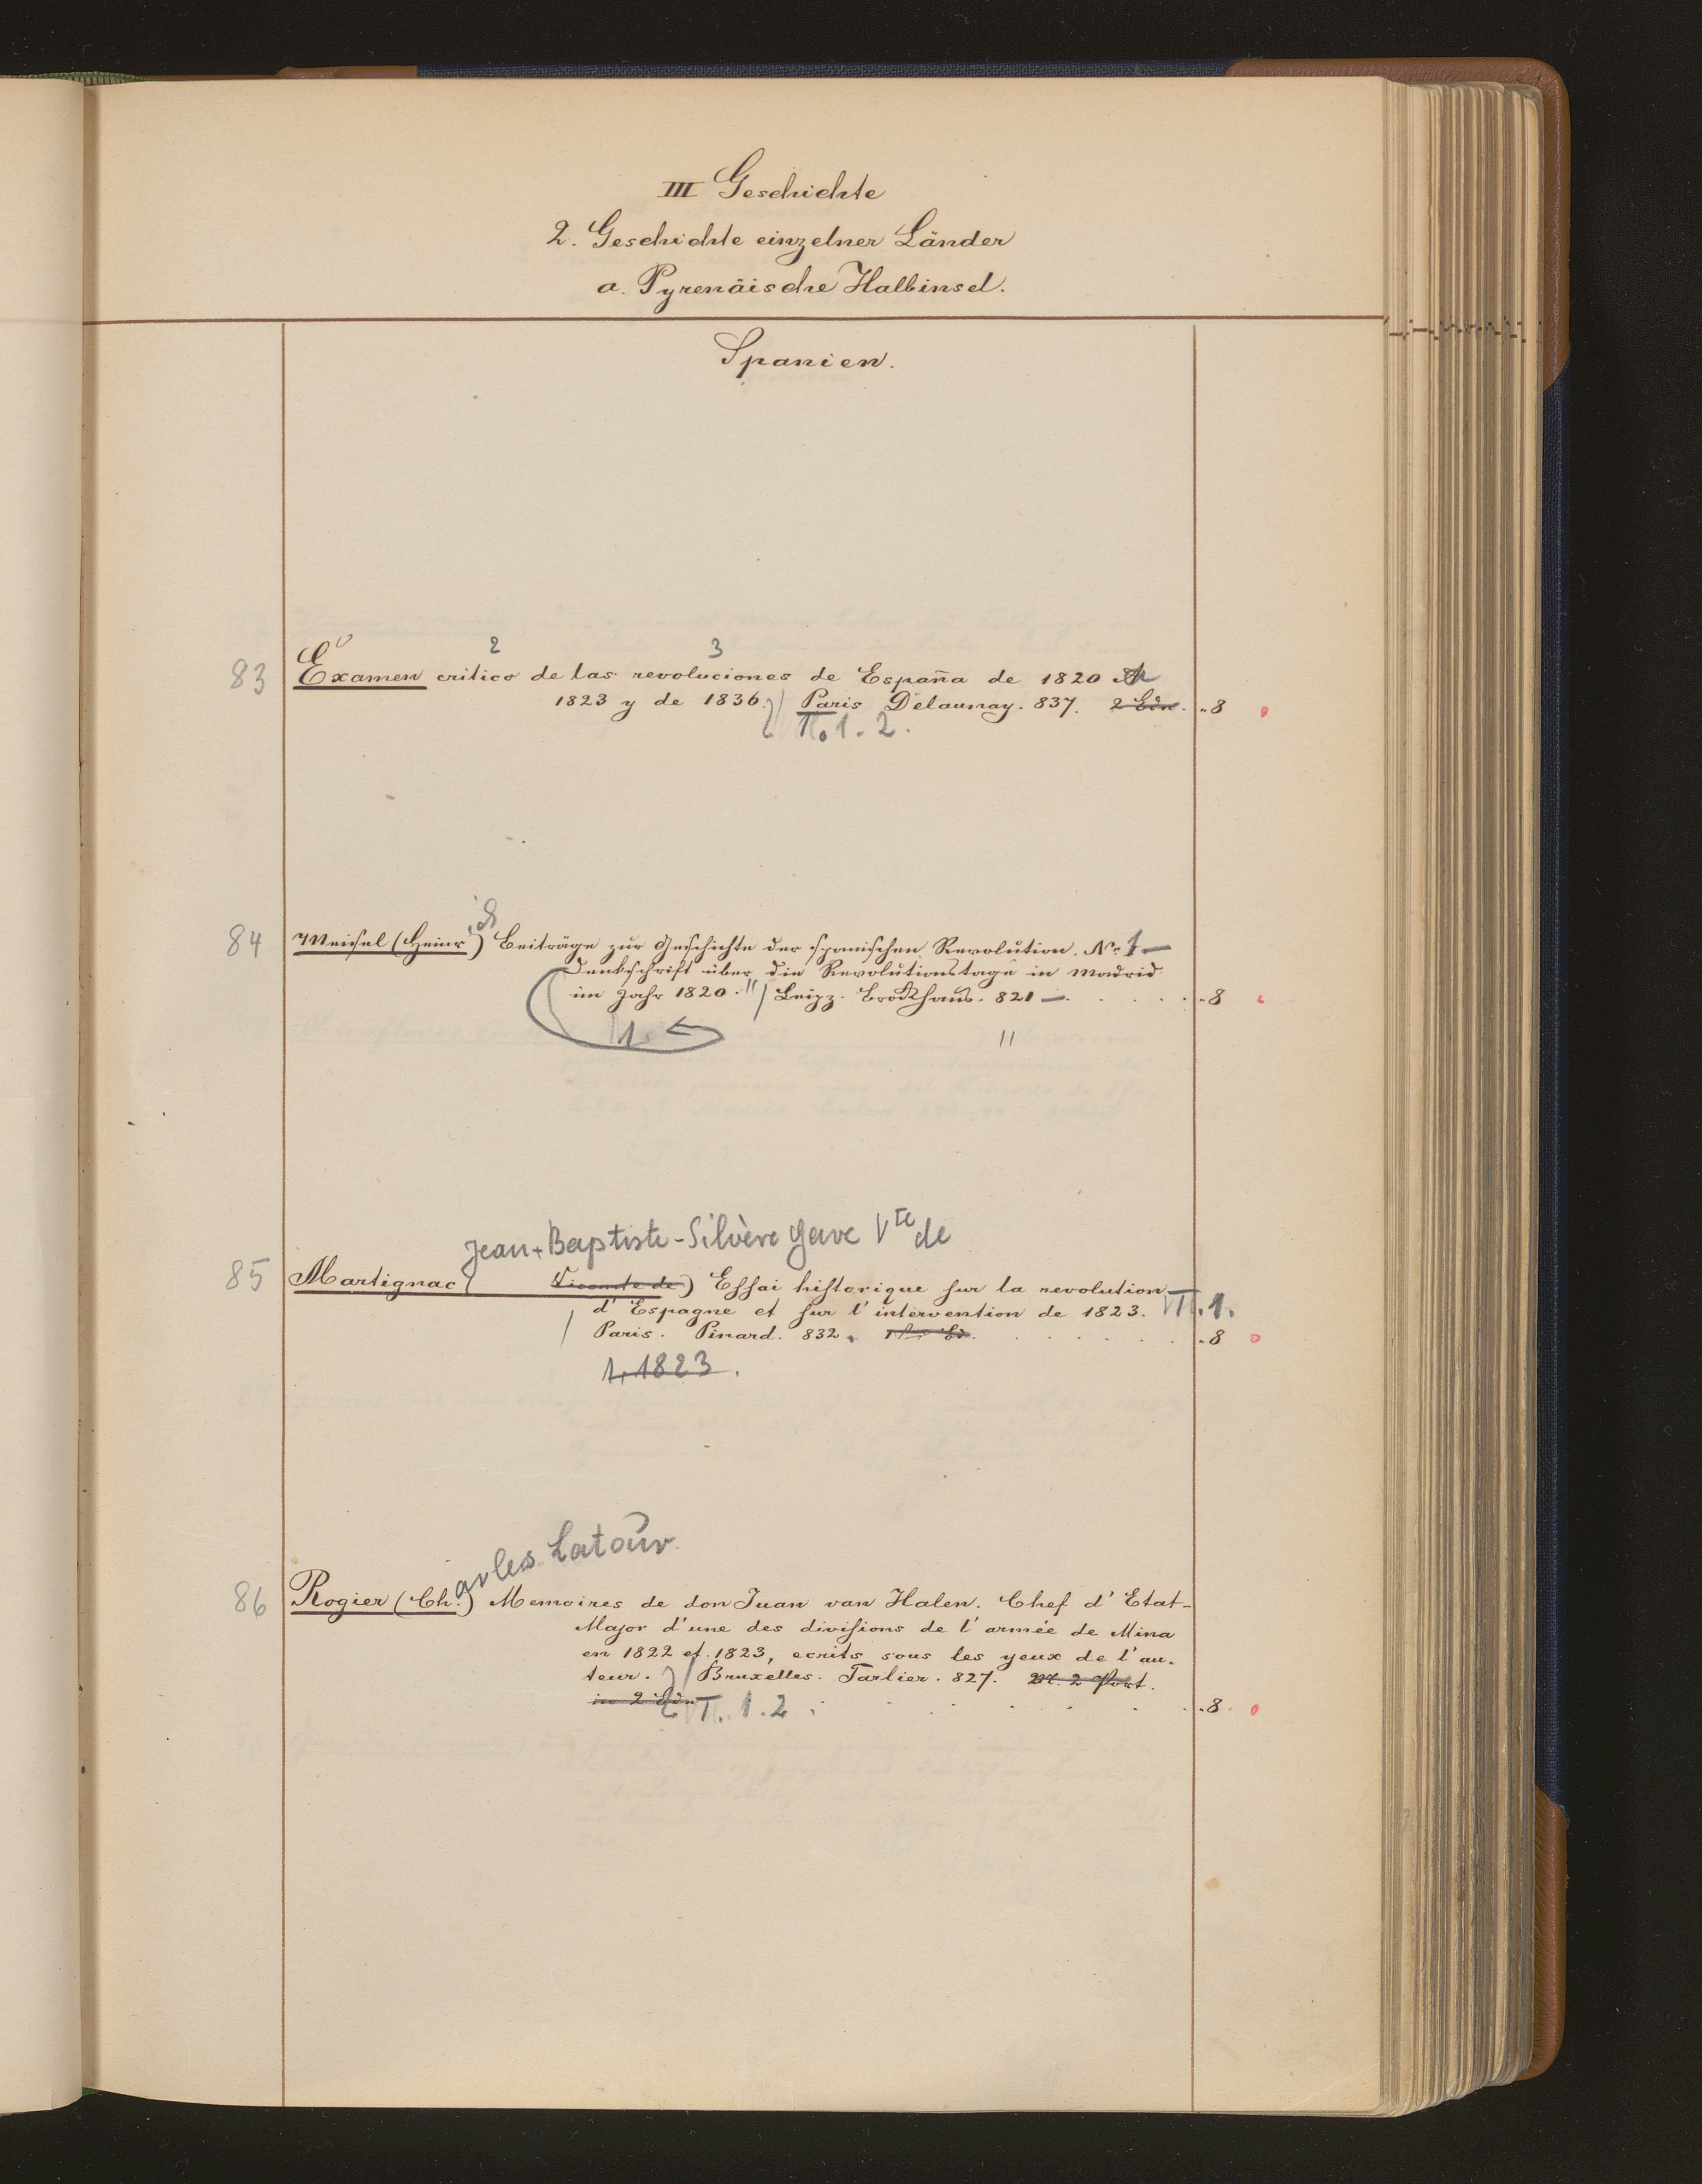 III Geschichte
2. Geschichte einzelner Länder
a. Pyrenäische Halbinsel.
Spanien.
2 3
83 Examen critico de las revoluciones de España de 1820 á
1823 y de 1836. Paris Delaunay. 837. 2 Bde. 8
T. 1. 2.
84 Meisel (Heinrich) Beiträge zur Geschichte der spanischen Revolution. No. 1
Denkschrift über die Revolutionstage in Madrid
im Jahr 1820. Leipz. Brockhaus. 821 8
Jean-Baptiste-Silvère Gave Vte de
85 Martignac (Vicomte de) Essai historique sur la revolution
d'Espagne et sur l'intervention de 1823. T. 1.
Paris. Pinard. 832. 8
1, 1823.
arles Latour
86 Rogier (Ch.) Memoires de don Juan van Halen. Chef d'Etat-
Major d'une des divisions de l'armée de Mina
en 1822 et 1823, ecrits sous les yeux de l'au-
teur. Bruxelles. Tarlier. 827. 2 Port.
in 2 Bdn T. 1. 2 8